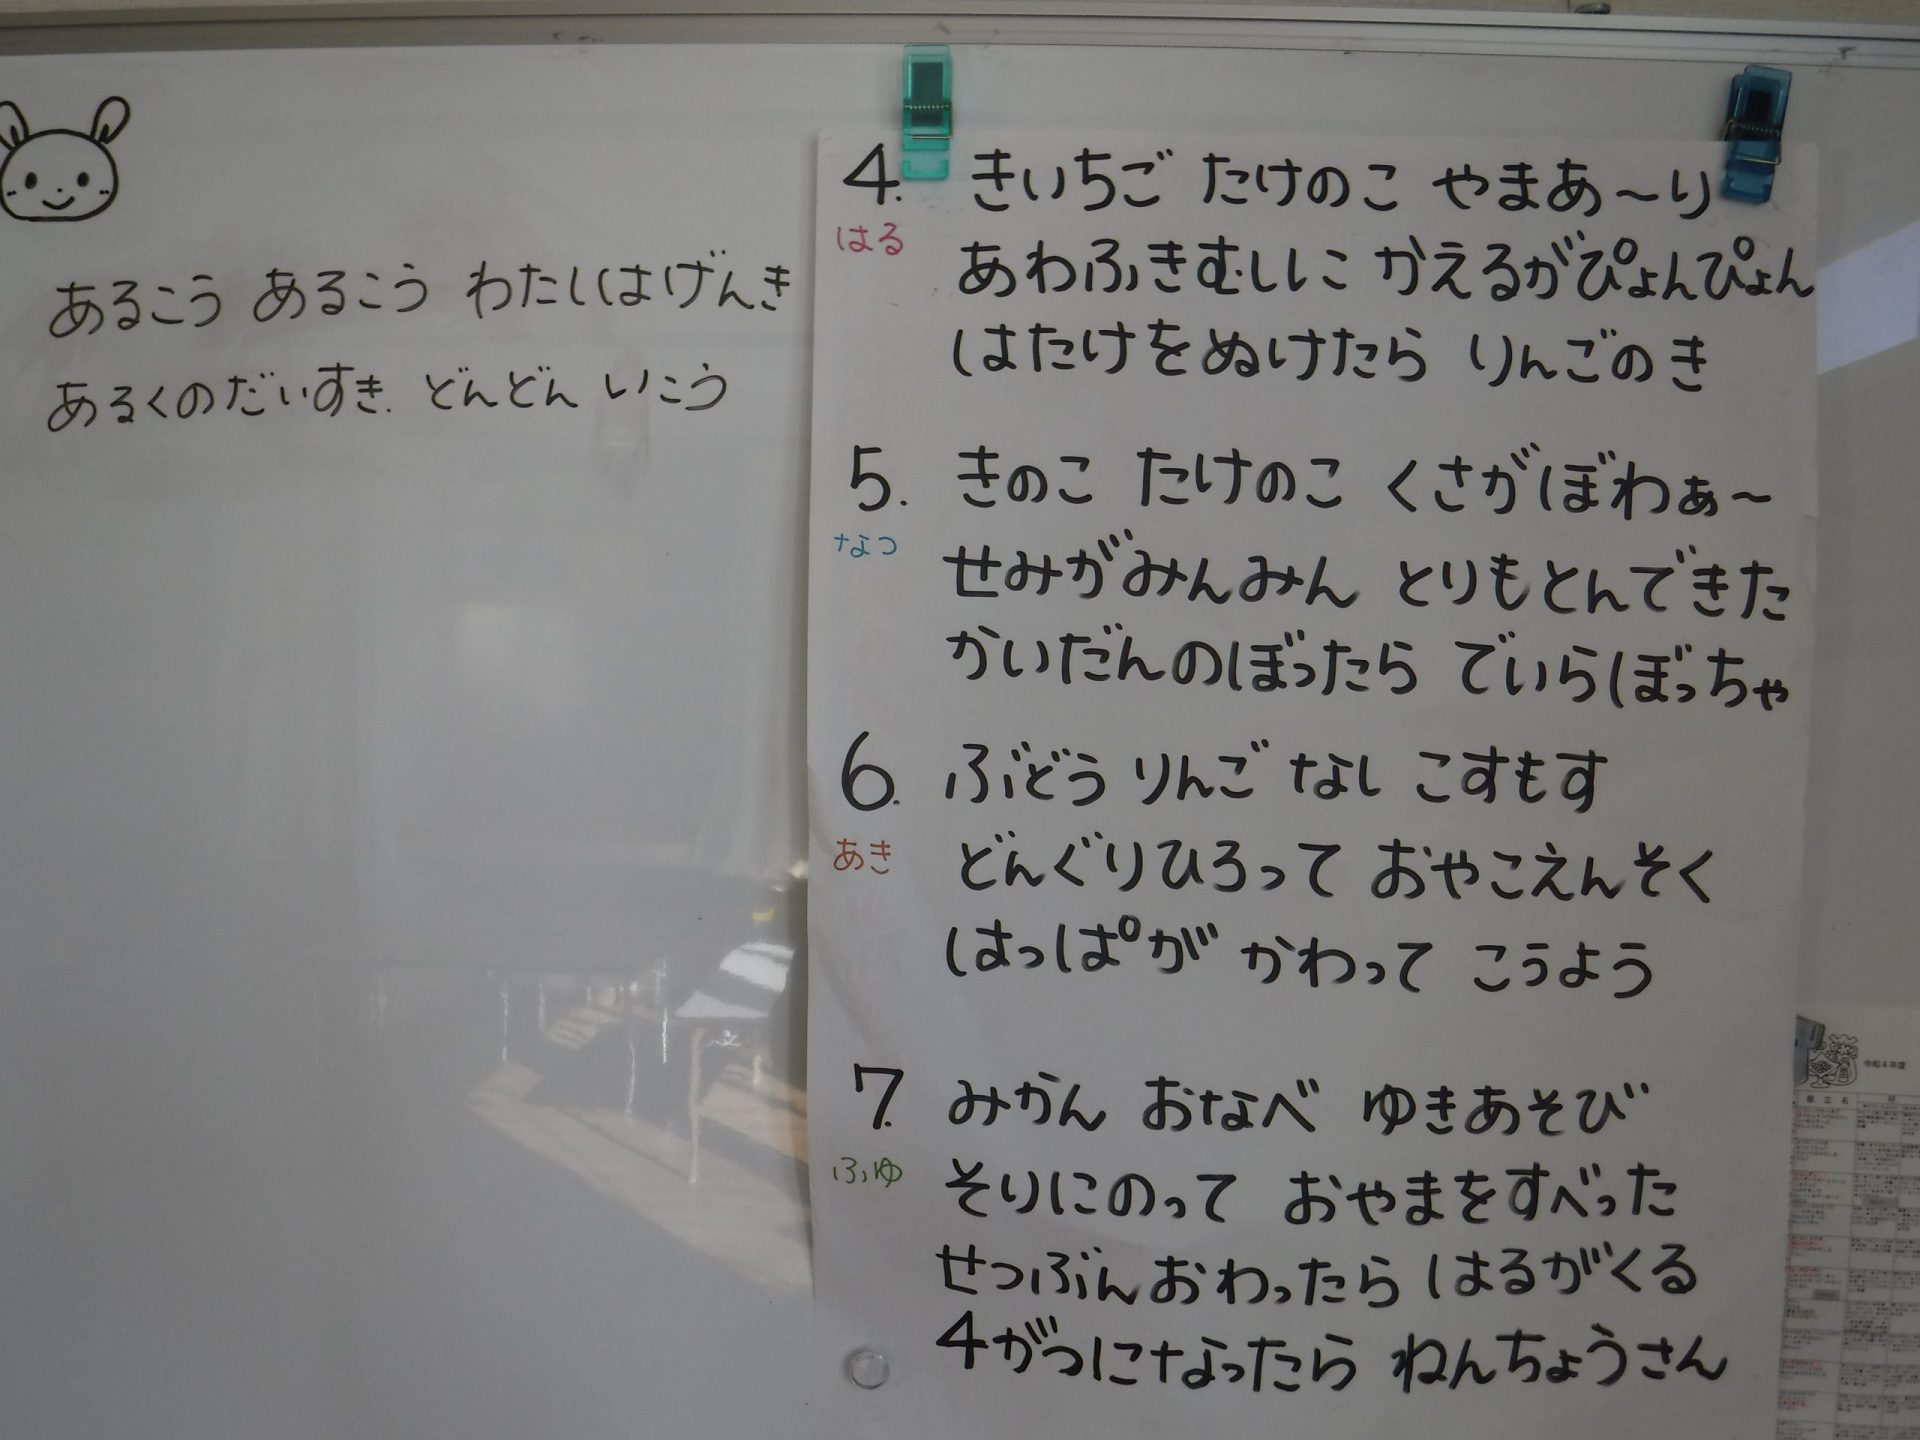 あるこう あるこう わたしはげんき
あるくのだいすき. どんどん いこう
4. きいちご たけのこ やまあ～り
はる
あわふきむしに かえるがぴょんぴょん
はたけをぬけたら りんごのき
5. きのこ たけのこ くさがぼわぁ～
なつ
せみがみんみん とりもとんできた
かいだんのぼったら でいらぼっちゃ
6. ぶどう りんご なし こすもす
あき
どんぐりひろって おやこえんそく
はっぱが かわって こうよう
7. みかん おなべ ゆきあそび
ふゆ
そりにのって おやまをすべった
せつぶんおわったら はるがくる
4がつになったら ねんちょうさん
令和4年度